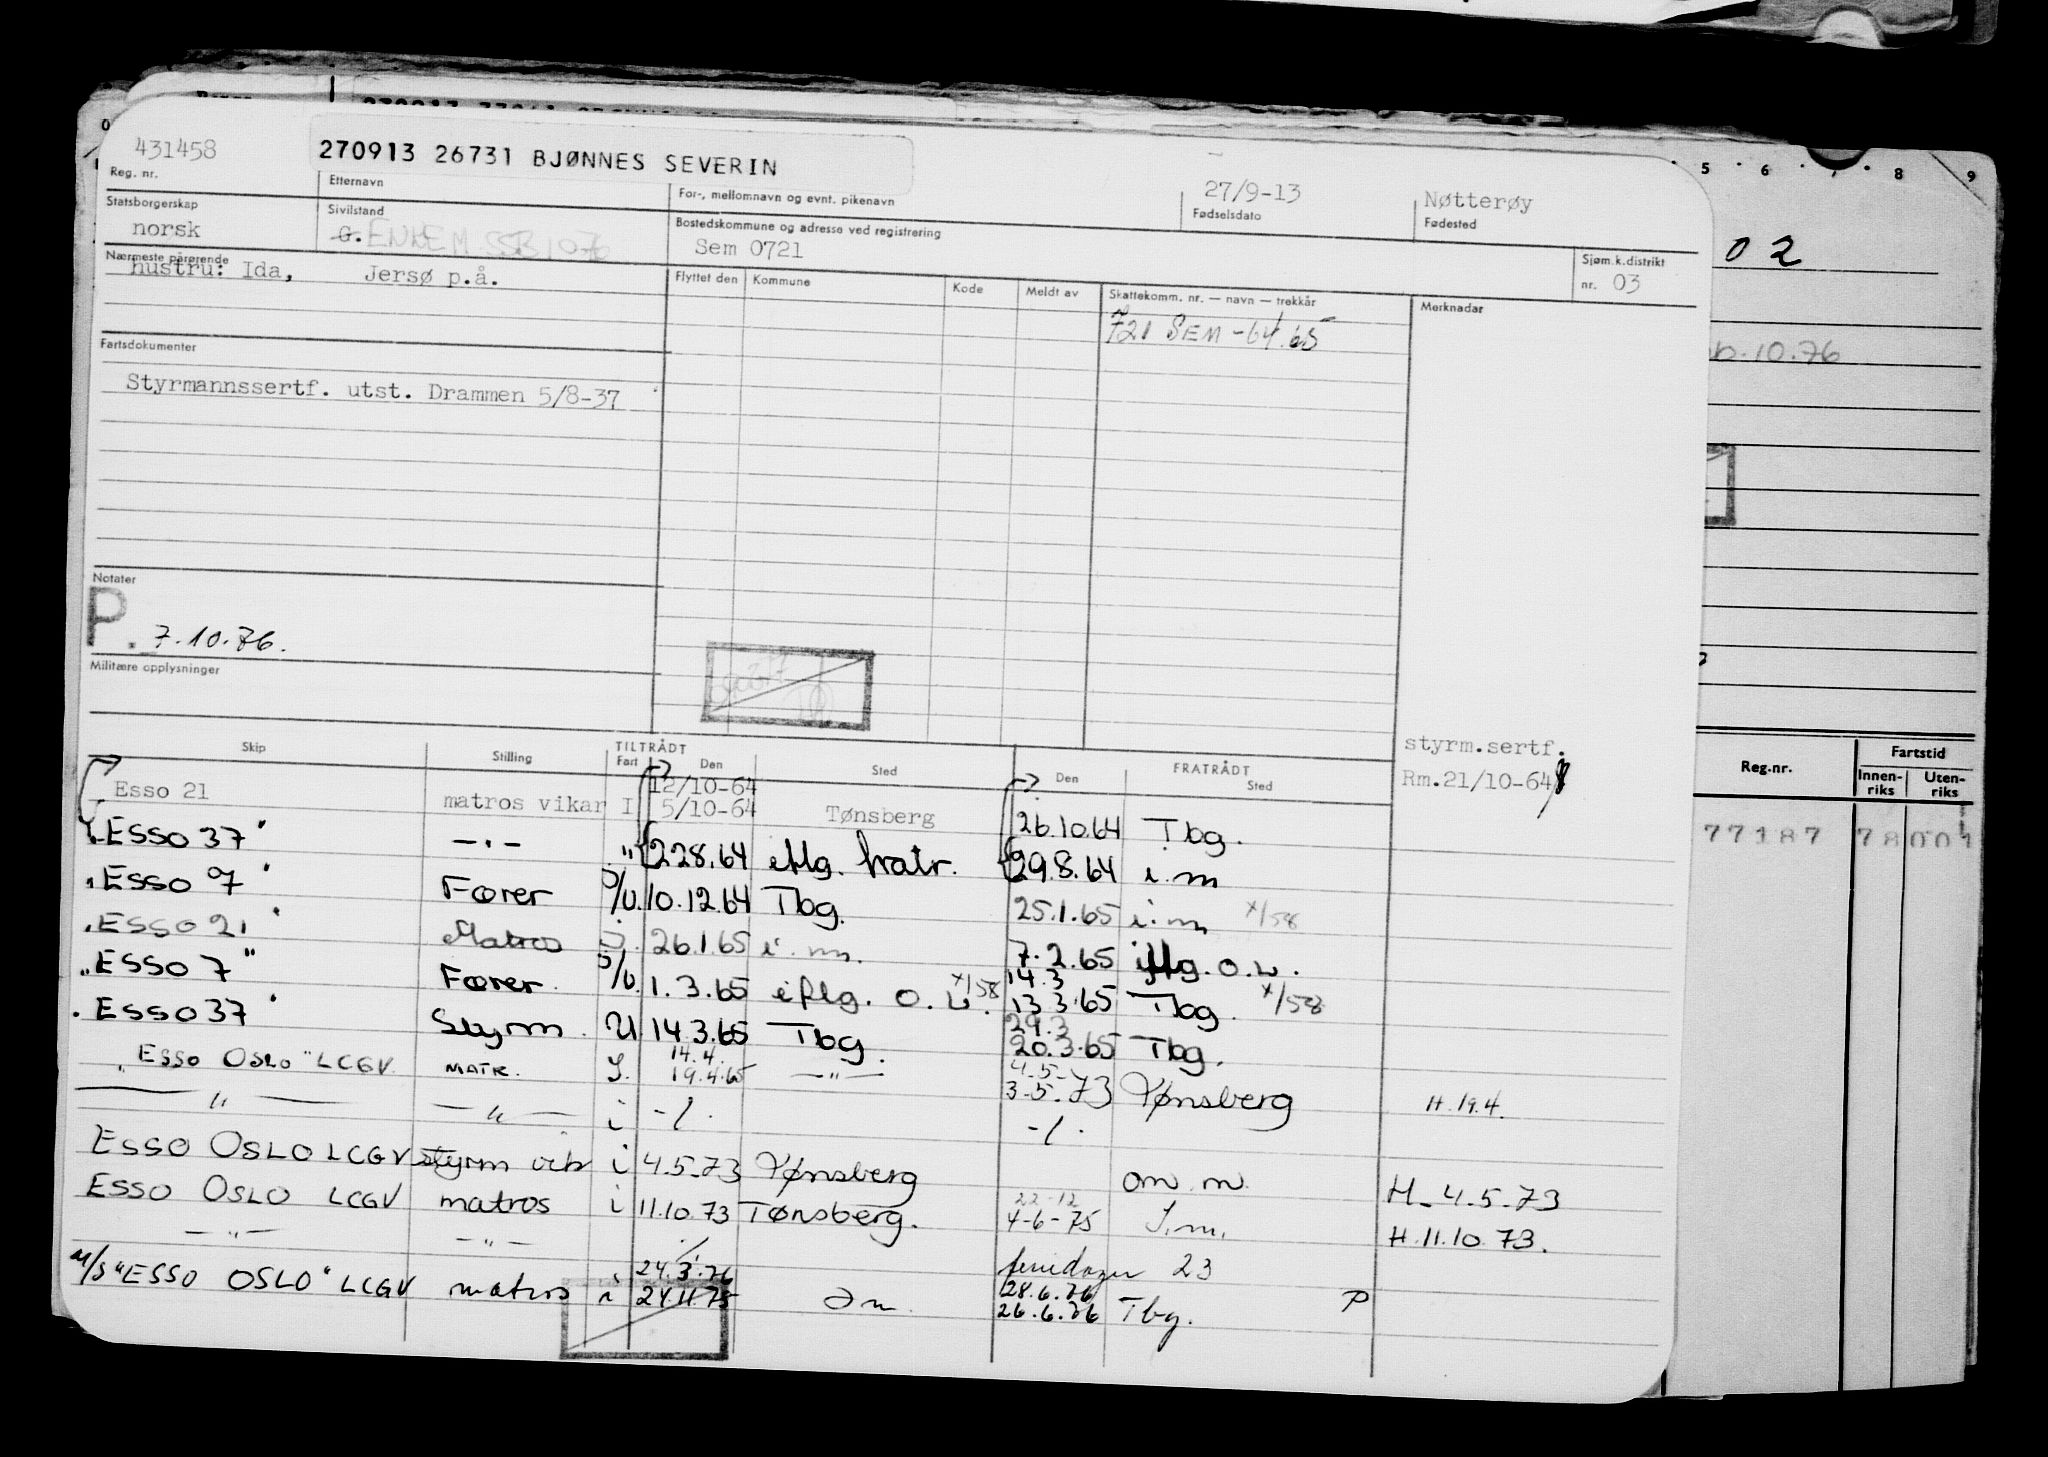 431458
270913 26731 BJØNNES SEVERIN
27/9-13
Nøtterøy
Reg. nr.
Etternavn
For-, mellomnavn og evnt. pikenavn
Fødselsdato
Fødested
Statsborgerskap
norsk
Sivilstand
G. ENKEM SSB 10 76
Bostedskommune og adresse ved registrering
Sem 0721
Sjøm.k.distrikt
nr. 03
Nærmeste pårørende
hustru: Ida, Jersø p.å.
Flyttet den Kommune Kode Meldt av Skattekomm. nr. — navn — trekkår Merknader
721 SEM - 64. 65
Fartsdokumenter
Styrmannssertf. utst. Drammen 5/8-37
Notater
P. 7.10.76.
Militære opplysninger
styrm.sertf.
Rm.21/10-64
Skip Stilling TILTRÅDT Fart Den Sted FRATRÅDT Den Sted
12/10-64
Esso 21 matros vikar I 5/10-64 Tønsberg 26.10.64 Tbg.
"ESSO 37" —"— " 22.8.64 iflg. hratr. 29.8.64 i.m
"ESSO 7" Fører I/U. 10.12.64 Tbg. 25.1.65 i.m x/58
"ESSO 21" Matros I. 26.1.65 i.m. 7.2.65 iflg. o.w.
14.3
"ESSO 7" Fører. I/U. 1.3.65 iflg. o.w. x/58 13.3.65 Tbg. x/538
29.3
"ESSO 37" Styrm. U 14.3.65 Tbg. 20.3.65 Tbg.
14.4. 4.5-
"ESSO OSLO" LCGV. MATR. I. 19.4.65 —"— 3-5-73 Tønsberg H.19.4.
—"— —"— i -/. -/.
ESSO OSLO LCGV styrm vik i 4.5.73 Tønsberg om.m. H-4.5.73
22-12
ESSO OSLO LCGV matros i 11.10.73 Tønsberg. 4-6-75 I.m. H.11.10.73.
—"— —"— / feriedager 23
24.3.76 28.6.76
M/S "ESSO OSLO" LCGV matros i 24.11.75 Om. 26.6.76 Tbg. P
5 6 7 8 9
02
10.76
Reg.nr.
Fartstid
Innenriks
Utenriks
77187 78 001